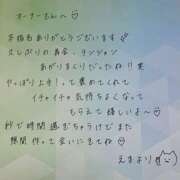 オーナーさんへ♡
本指名ありがとうございます
ひさしぶりの再会、テンション
あがりまくりだったね!! 笑
やっぱり上手!。って褒めてくれて
イチャイチャ気持ちよくなって
もらえて嬉しいよ♡
秒で時間過ぎちゃうけどまた
隙間作って会いにきてね♡
えまより